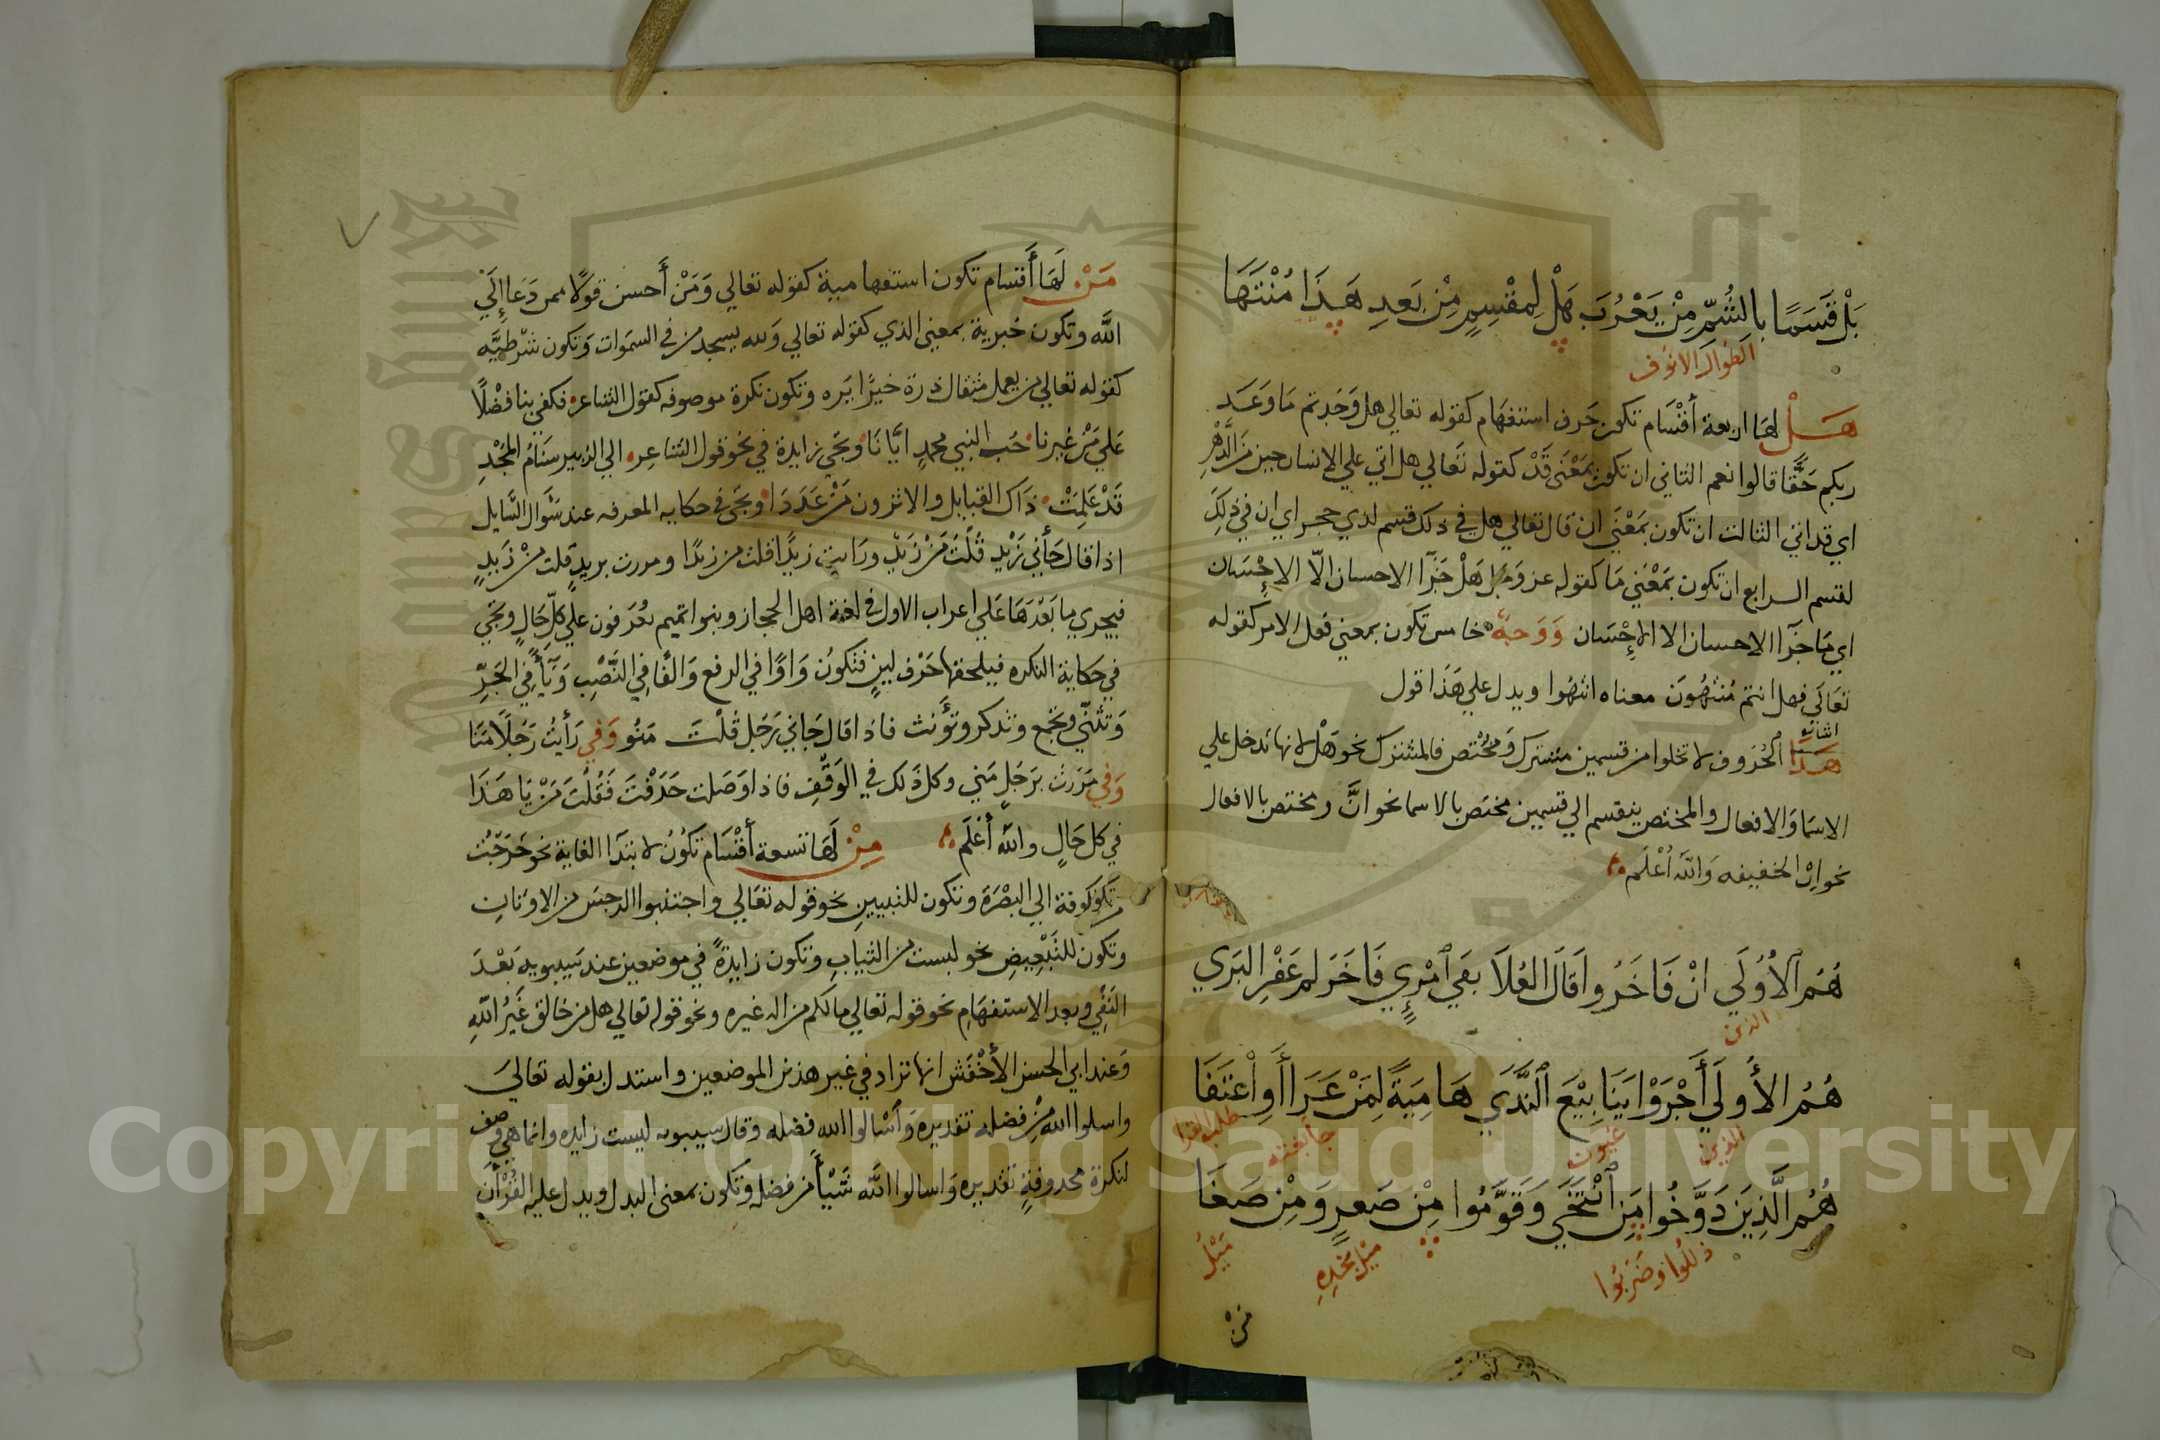 بَلْ قَسَمًا بِالشُّمِّ مِنْ يَعْرُبَ هَلْ لِمقْسِمٍ مِنْ بَعدِ هَذَا مُنْتَهَا
الطوال الانوف
هَلْ لها اربعة أقْسَام تكون حَرف استفهَام كقوله تعالي هل وَجَدتم مَا وَعَد
ربكم حَقًّا قالوا نعم الثاني ان تكون بمَعْنَي قَدْ كقوله تَعالي هل اتي علي الانسان حين مِن الدَّهْرِ
اي قد اتي الثالث ان تكون بمَعْنَي ان قال تعالي هل في ذلك قسم لذي حجر اي ان في ذلِكَ
لقسم الرابع ان تكون بمَعْنَي مَا كقوله عز وَجل هَلْ جَزَآ الاحسان الّا الاِحْسَان
اي مَا جَزَآ الاحسان الا الاِحْسَان وَوَجه خامس تكون بمعني فعل الامر كقوله
تعَالَي فهل انتم مُنْتهُونَ معناه انتهُوا ويدل علي هَذَا قول
هَذَا الحُرَوف لا تخلوا من قسمين مشترك وَمخْتص فالمشترك نحو هَلْ لانها تدخل علي
الاسمَا وَالافعال والمختص ينقسم الي قسمين مختَص بالاسما نحو انَّ ومختص بالافعال
نحو اِنْ الخفيفه وَاللّه أعْلَم
هُمُ الأُوُلَي انْ فَاخَرُوا قَالَ العُلَا بفَي امْرِيٍ فَاخَرَلم عَفْرِ البَرَي
الذين
هُمُ الأُولَي أَجْرَوْا يَنَابِيْعَ النَّدَي هَامِيَةً لِمَنْ عَرَا أَوِ اعْتَفَا
الذين عيون
هُمُ الَّذِيَن دَوَّخُوا مَنِ انْتَخَي وَقَوَّمُوا مِنْ صَعرٍ وَمِنْ صَغَا
ذللُوا وضَرَبُوا ميل بخدِهِ مَيْلُ
من
مَنْ لَهَا أَقسام تكون استفهامية كقوله تعالي وَمَنْ أَحسن قولًا ممن دَعَا إلَي
اللَّه وتكون خبرية بمعني الذي كقوله تعالي وَلله يسجد من في السمَوات وَتكون شرطيَّه
كقوله تعالي من يعمل مثقال ذرة خيرًا يَره وتكون نكرة موصوفه كقول الشاعر فكفي بنا فضْلًا
عَلي مَنْ غيرنا حُب النبي محمدٍ ايَّانَا وَتجَي زايدة في نحو قول الشَاعِر الي الزبير سنَامُ المجْدِ
قَدْ عَلِمَتْ ذَاك القبايل والاثرون مَنْ عَدَدَا وتجَى في حكايه المعرفه عند سُوَال السَّايل
اذا قال جَأني زَيْد قُلْتُ مَنْ زَيدٌ ورَايت زيدًا قلت من زيدًا ومررت بزيدٍ قلت منْ زَيدٍ
فيجري ما بَعْدَهَا عَلي اعراب الاول في لغة اهل الحجاز وبنوا تميم يعُرَفون علي كلّ حَالٍ وتجَي
في حكاية النكره فيلحقها حَرْف لينٍ فتكونُ وَاوًا في الرفع وَالفا في النَّصْبِ وَيَأ في الجَرِّ
وَتثنّي وتجمع وتذكر وتؤَنث فاذا قال جَاني رَجل قُلْتَ مَنُو وَفي رَأيْتُ رَجُلًا مَنَا
وَفي مَرَرت برَجلٍ مَني وكل ذَلك في الوَقْفِ فاذا وَصَلت حَذَفْتَ فَقُلْتَ مَنْ يَا هَذَا
في كل حَالٍ واللّه أَعْلَم مِنْ لَهَا تسعة أقْسَام تكُونُ لابتدَا الغاية نحو خَرَجْت
من كوفة الي البصْرَة وتكون للتبيينِ نحو قوله تعَالي واجتنبوا الرجسَ من الاوثانِ
وتكون للتّبْعِيضِ نحو لبست من الثيابِ وتكون زايدةً في موضعين عند سيبويه بَعْدَ
النفْي وبعد الاستفهَامِ نحو قوله تعَالي مالكم من اله غيره ونحو قوله تعالي هل من خالق غَيْرُ اللّهِ
وَعند ابي الحسن الأخْفَش انها تزاد في غير هذين الموضعين واستدل بقوله تعالي
واسلوا الله مِنْ فضله تقديره وَأسْالوا الله فضله وقال سيبويه ليست زايده وانما هي وصف
لنكرة محذوفةٍ تقديره وَاسالوا اللَّه شَيْأً من فضله وَتكون بمعني البدل ويدل عليه القُرْأَن